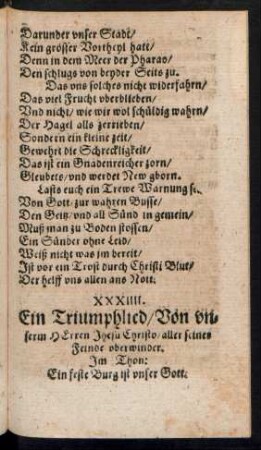 Darunder vnser Stadt/
Kein grosser Vortheyl hatt/
Denn in dem Meer der Pharao/
Den schlugs von beyder Seits zu.
Das vns solches nicht widerfahrn/
Das viel Frucht vberblieben/
Vnd nicht/ wie wir wol schüldig wahrn/
Der Hagel alls zerrieben/
Sondern ein kleine zeit/
Gewehrt die Schreckligkeit/
Das ist ein Gnadenreicher zorn/
Gleubets/ vnd werdet New gborn.
Lasts euch ein Trewe Warnung
Von Gott/ zur wahren Busse/
Den Geitz/ vnd all Sünd in gemein/
Muß man zu Boden stossen/
Ein Sünder ohne Leid/
Weiß nicht was jm bereit/
Ist vor ein Trost durch Christi Blut/
Der helff vns allen aus Nott.
XXXIIII.
Ein Triumphlied/ Von vn-
serm HErren Jhesu Christo/ aller seines
Feinde vberwinder.
Im Thon:
Ein feste Burg ist vnser Gott.